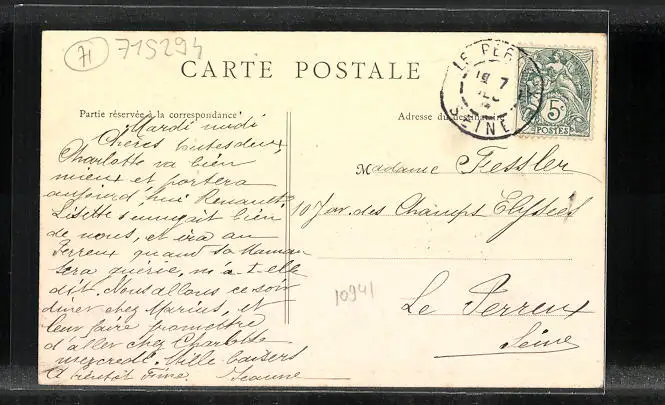 71 715294
CARTE POSTALE
Partie réservée à la correspondance
Adresse du destinataire
LE PER
19 7
SEINE
5c
POSTES
Mardi midi
Chères toutes deux,
Charlotte va bien
mieux et portera
aujourd'hui Renault.
Lisette s'ennuyait bien
de nous, et ira au
Perreux quand sa Maman
sera guérie, m'a-t-elle
dit. Nous allons ce soir
diner chez Marius, et
leur faire promettre
d'aller chez Charlotte
mercredi. Mille baisers
A bientôt Jeanne
Madame Fessler
10 Jav. des Champs Elysées
Le Perreux
Seine
10941